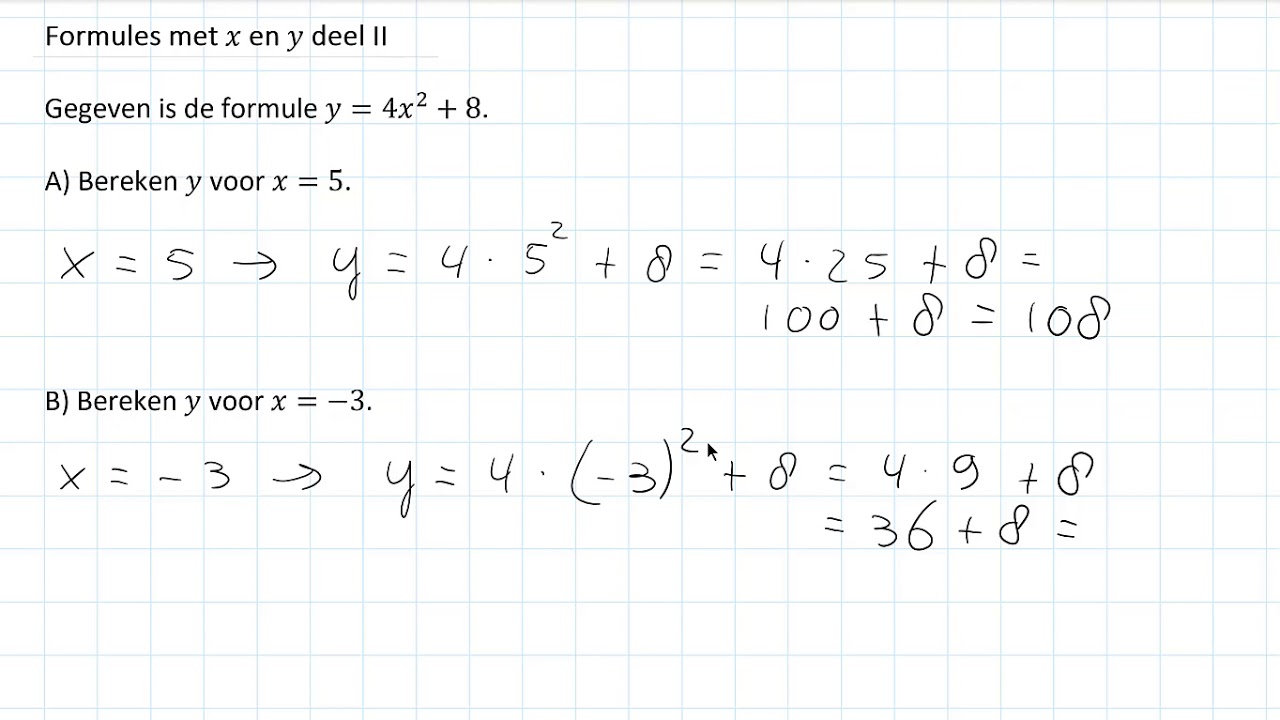 Formules met x en y deel II
Gegeven is de formule y = 4x² + 8.
A) Bereken y voor x = 5.
x = 5 → y = 4 · 5² + 8 = 4 · 25 + 8 =
100 + 8 = 108
B) Bereken y voor x = −3.
x = − 3 → y = 4 · (−3)² + 8 = 4 · 9 + 8
= 36 + 8 =